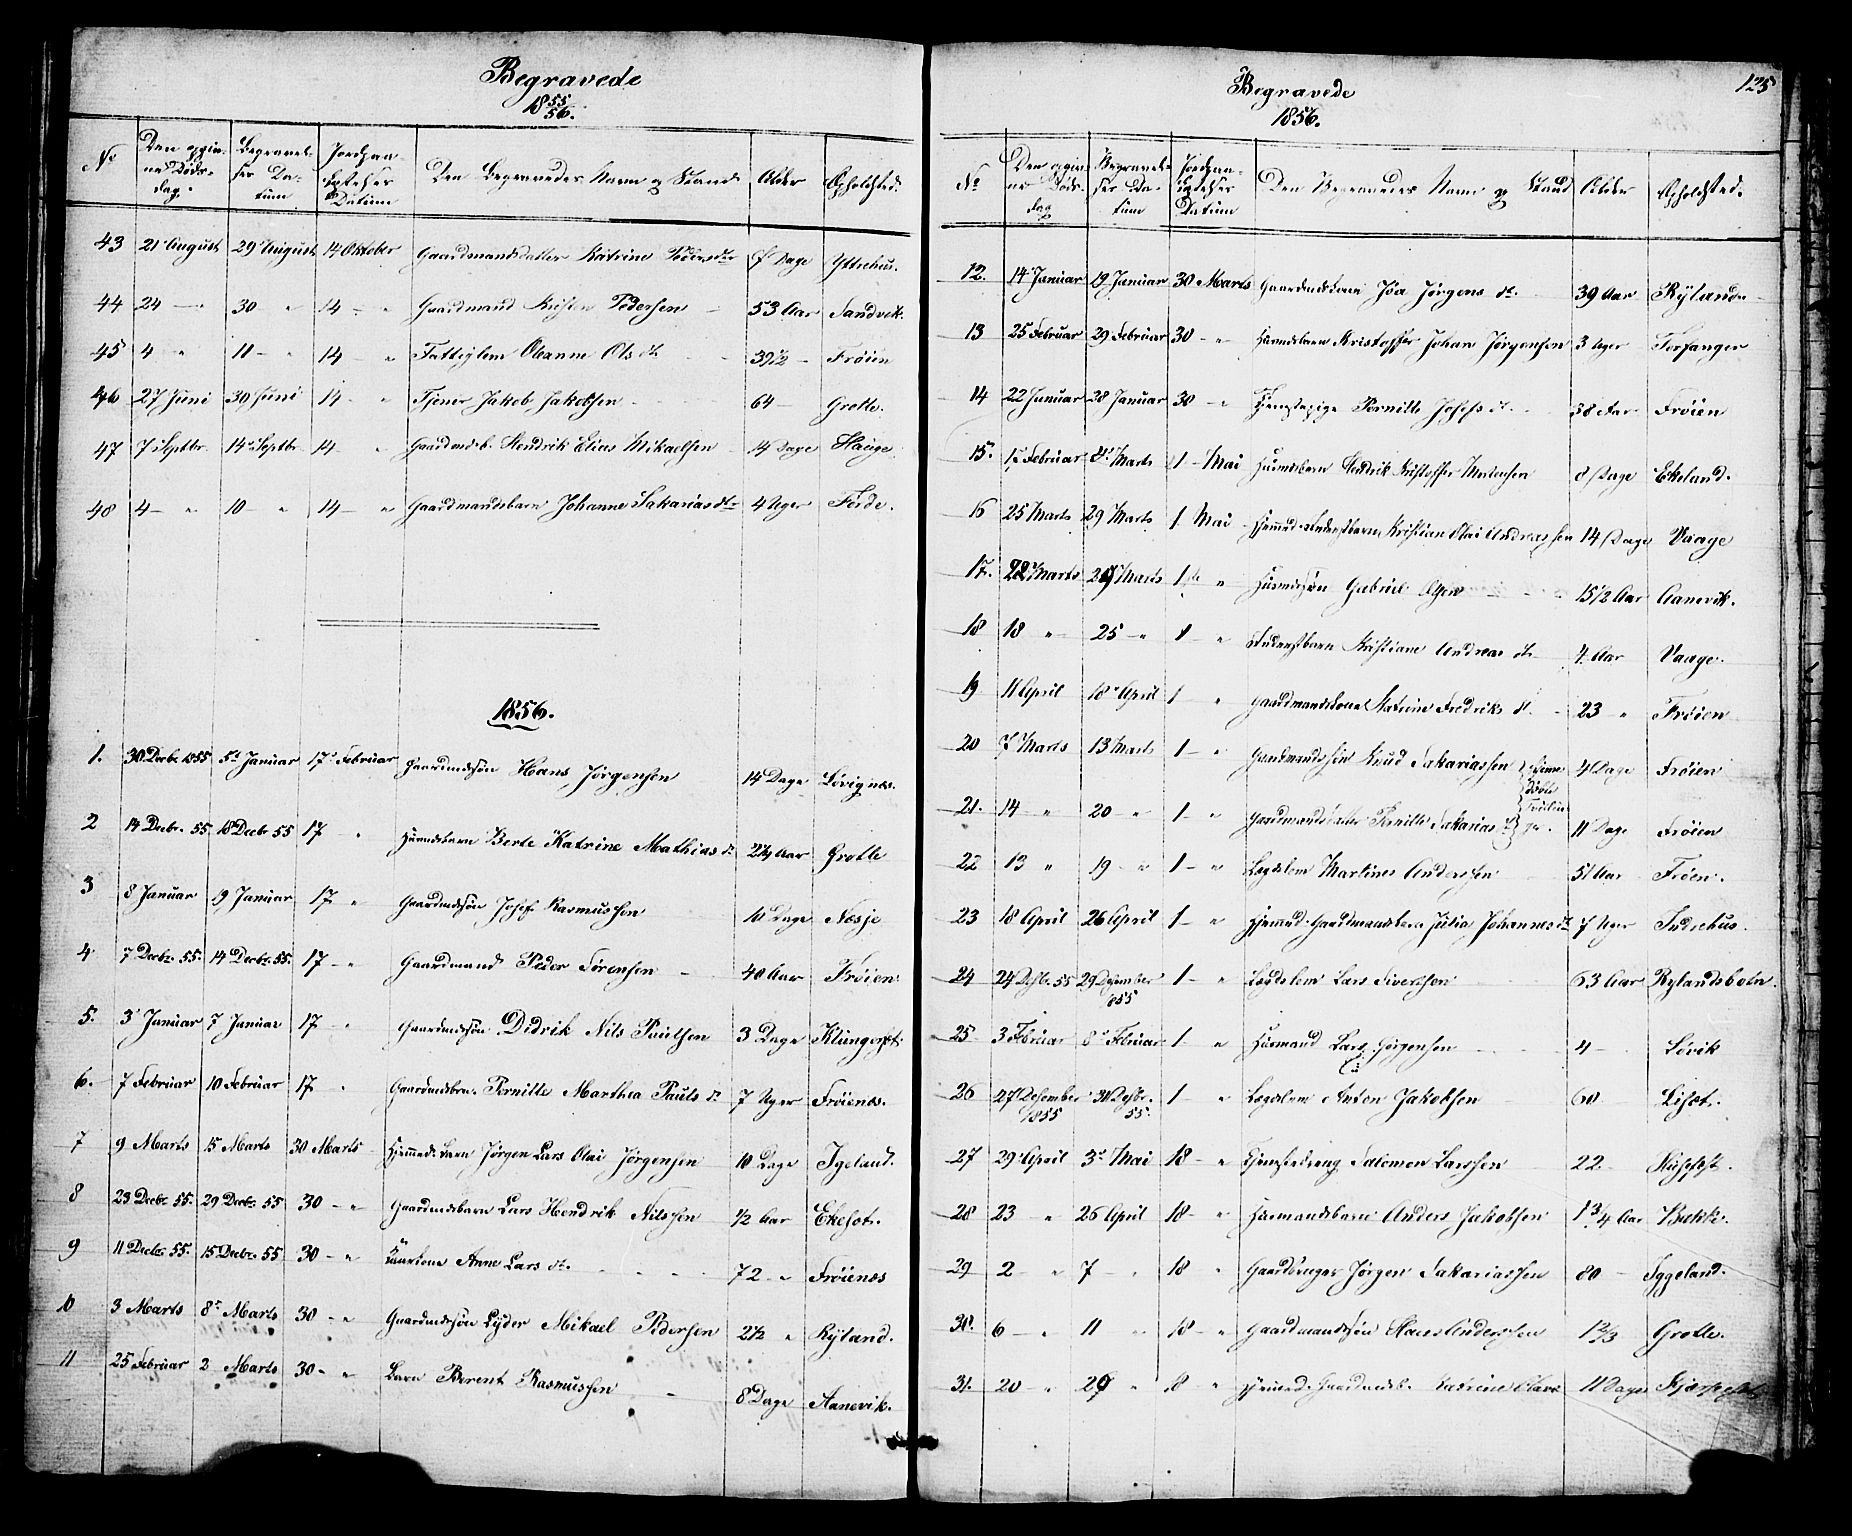 Begravede
1855/56.
No | Den opgivne Døds-dag. | Begravel-ses Da-tum | Jordpaa-kastelses Datum | Den Begravedes Navn og Stand | Alder | Opholdsted.
43 21 August 29 August 14 Oktober Gaardmandsdatter Katrine Peders dtr 7 Dage Yttrehus.
44 24 — " 30 " 14 - " Gaardmand Kristen Pedersen 53 Aar Sandvek.
45 4 " 11 - " 14 - " Fattiglem Oleanne Ols dtr 39 1/2 - Frøien
46 27 Juni 30 Juni 14 - " Tjener Jakob Jakobsen 64 — Grotle.
47 7 Septbr. 14 Septbr 14 - " Gaardmdsb. Hendrik Elias Mikaelsen 14 Dage Hauge
48 4 - " 10 - " 14 - " Gaardmandsbarn Johanne Sakarias dtr 4 Uger Førde.
1856.
1. 30 Decbr. 1855 5t Januar 17 Februar Gaardmdssøn Hans Jørgensen 14 Dage Løvignæs.
2 14 Decbr. 55 18 Decbr 55 17 - " Husmdsbarn Berte Katrine Mathias dtr 2 1/4 Aar Grotle
3 8 Januar 19 Januar 17 - " Gaardmdssøn Josef Rasmussen 10 Dage Nesje
4 7 Decbr. 55. 14 Decbr. 55. 17 - " Gaardmand Peder Sørensen 40 Aar Frøien
5. 3 Januar 7 Januar 17 - " Gaardmdssøn Didrik Nils Paulsen 3 Dage Klungeset.
6. 7 Februar 10 Februar 17 " Gaardmdsbrn. Pernille Marthea Pauls dtr 7 Uger Frøienæs.
7 9 Marts 15 Marts 30 Marts Hjemmed. Barn Jørgen Lars Olai Jørgensen 10 Dage Igeland.
8 23 Decbr. 55. 29 Decbr. 55 30 - " Gaardmdsbarn Lars Hendrik Nilssen 1/2 Aar Ekeset.
9 11 Decbr. 55. 15 Decbr. 55 30 - " Kaarkone Anne Lars dtr. 72 - " Frøienæs
10 3 Marts 8t Marts 30 - " Gaardmdssøn Lyder Mikael Pedersen 2 1/2 " Ryland.
11 25 Februar 2 Marts 30 - " Barn Berent Rasmussen 8 Dage Aanevik.
125
Begravede
1856.
No | Den opgiv-ne Døds-dag | Begravel-ses Da-tum | Jordpaa-kastelses Datum | Den Begravedes Navn og Stand | Alder | Opholdsted.
12. 14 Januar 19 Januar 30 Marts Jøa Jørgens dtr. 39 Aar Rylande
13 25 Februar 29 Februar 30 - " Husmdsbarn Kristoffer Johan Jørgensen 3 Uger Torfanger
14 22 Januar 28 Januar 30 - " Tjenstepige Pernille Josefs dtr. 38 Aar Frøien
15. 12 Februar 8t Marts 1 - Mai Husmdsbarn Hendrik Kristoffer 8 Dage Ekeland.
16 25 Marts 29 Marts 1 Mai Hjemmed. Kristian Olai Andreassen 14 Dage Vaage
17. 22 Marts 29 Marts 1 " Husmdssøn Gabriel Olsen 15 1/2 Aar Aanevik.
18 18 " 25 - " 1 " Kristiane Andreas dtr 4 Aar Vaage.
19 11 April 18 April 1 " Gaardmandskone Katrine Fredriks dtr. 23 " Frøien
20 7 Marts 13 Marts 1 - " Gaardmandssøn Knud Sakariassen 4 Dage Frøien
21. 14 " 20 " 1 - " Gaardmandsdatter Pernille Sakarias dtr 11 Dage Frøien
22 13 " 19 - " 1 - " Lægdslem Martines Anderssen 51 Aar Frøien.
23 18 April 26 April 1 - " Hjemmed. Gaardmandsbarn Julia Johannes dtr 7 Uger Indrehus.
24 24 Desbr. 55 29 Desember 1855 1 - " Lægdslem Lars Siverssen 63 Aar Rylandsbotn.
25 3 Februar 8 Februar 1 - " Husmand Lars Jørgensen 4 - Løvik
26 27 Desember 1855 30 Desbr. 55. 1 - " Lægdslem Anton Jakobsen 60 - Liset.
27 29 April 3t Mai 18 - " Tjenstedreng Salomon Larssen 22 - Husefest.
28 23 " 26 April 18 - " Husmandsbarn Anders Jakobsen 1 3/4 Aar Bække.
29 2 " 7 " 18 " Gaardbruger Jørgen Sakariassen 80 - Iggeland.
30. 6 - " 11 " 18 - " Gaardmandssøn Hans Anderssen 1 2/3 Grotle.
31. 20 - " 29 " 18 " Hjemmed. Gaardmdsb. Katrine Olava 11 Dage